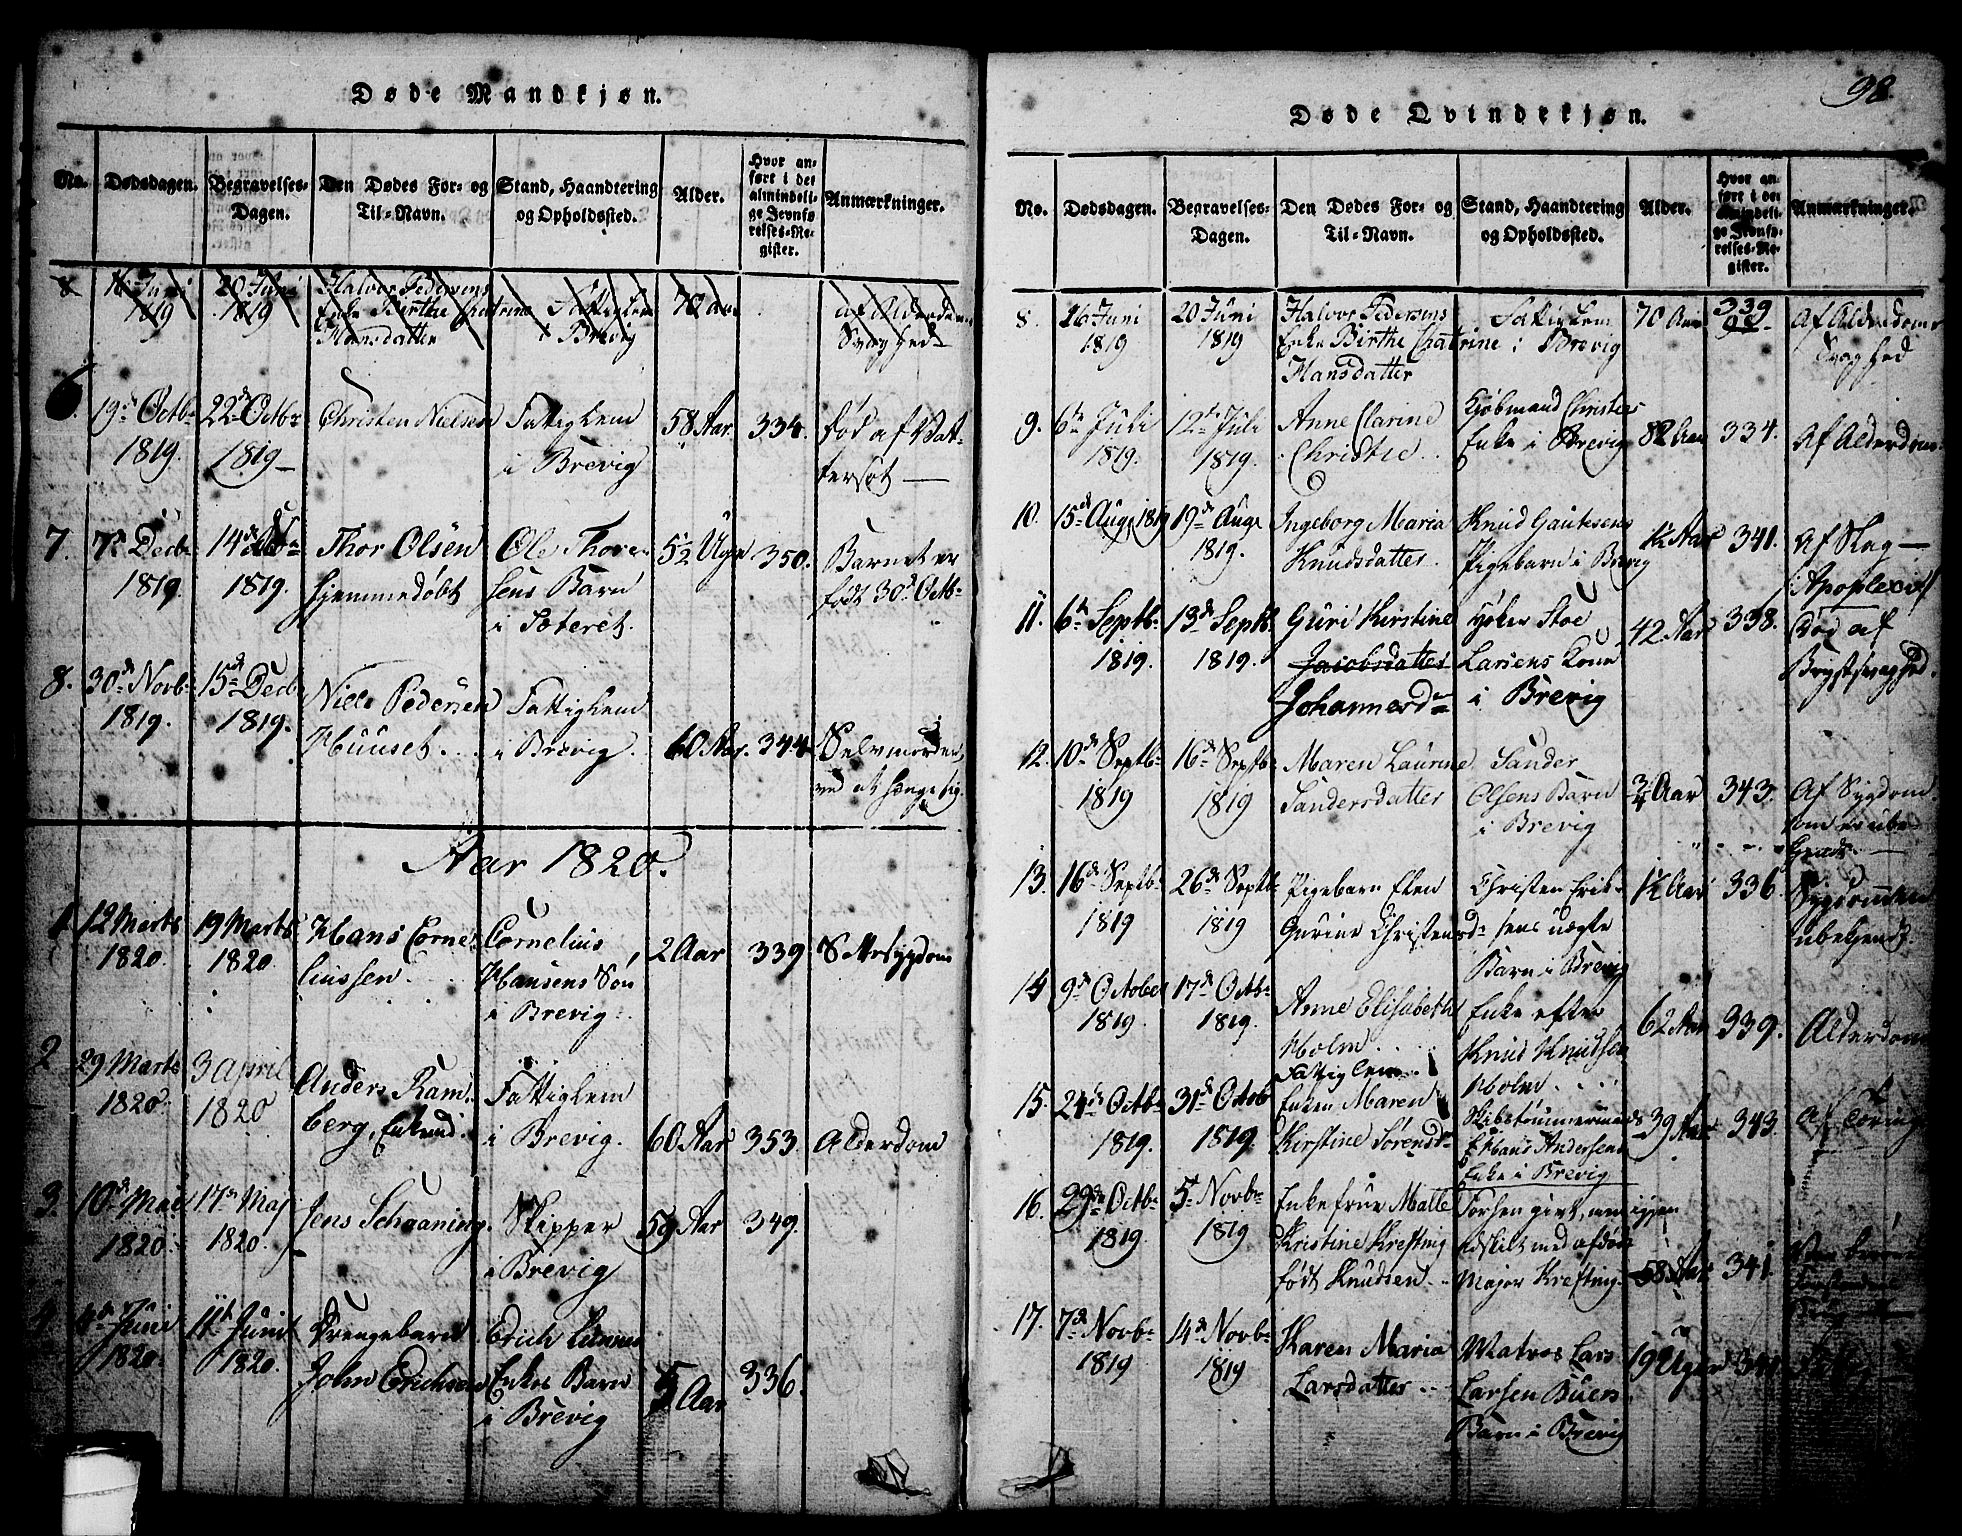 Døde Mandkjøn.
No. Dødsdagen. Begravelses-Dagen. Den Dødes For- og Til-Navn. Stand, Haandtering og Opholdssted. Alder. Hvor anført i det almindelige Jevnførelses-Register. Anmærkninger.
8 16 Juni 1819 20 Juni 1819 Halvor Pedersens Enke Birthe Chatrine Hansdatter Fattiglem i Brevig 70 Aar af Alderdoms Svaghed
6. 19de Octbr 1819. 22de Octbr 1819 Christen Nielsen Fattiglem i Brevig 58 Aar. 334. Død af Vattersot
7. 7de Decbr 1819. 14de 1819. Thor Olsen hjemmedøbt Ole Thoresens Barn i Soteret. 5½ Uge 350. Barnet er født 30te Octbr
8. 30de Novbr 1819. 15de Decbr 1819. Niels Pedersen Huuset. Fattiglem i Brevig. 60 Aar. 344 Selvmorder, ved at hænge sig.
Aar 1820.
1 12 Marts 1820. 19 Marts 1820 Hans Corneliussen Cornelius Hansens Søn i Brevig. 2 Aar 339 Sottesygdom
2 29 Marts 1820. 3 April 1820 Anders Ramberg, Enkemd. Fattiglem i Brevig. 60 Aar 353. Alderdom
3. 10de Mai 1820. 17de Maj 1820. Jens Schaaning Skipper i Brevig 59 Aar 349.
4 4de Juni 1820. 11te Junii 1820. Drengebarn John Erichsen Erich Enkes Barn i Brevig 5 Aar 336.
98.
Døde Qvindekjøn.
No. Dødsdagen. Begravelses-Dagen. Den Dødes For- og Til-Navn. Stand, Haandtering og Opholdssted. Alder. Hvor anført i det almindelige Jevnførelses-Register. Anmærkninger.
8. 16 Juni 1819 20 Juni 1819 Halvor Pedersens Enke Birthe Chatrine Hansdatter Fattiglem i Brevig 70 Aar 339 Af Alderdoms Svaghed
9. 6te Juli 1819. 12te Juli 1819. Anne Clarine Christie Kjøbmand Christies Enke i Brevig 82 Aar 334. Af Alderdom
10. 15de Aug 1819 19de Aug 1819. Ingeborg Maria Knudsdatter. Knud Gautesens Pigebarn i Brevig 1½ Aar 341. Af Slag Apoplexie
11. 6te Septbr. 1819. 13de Septbr. 1819. Guri Kirstine Jacobsdatter Johannesdr Høker Stoe Larsens Kone i Brevig 42 Aar 338. Død af Brystsvaghed.
12. 10de Septbr 1819 16de Septbr 1819 Maren Laurine Sandersdatter Sander Olsens Barn i Brevig ¾ Aar 343. Af Sygdom som er ubekjendt.
13. 16de Septbr 1819 26de Septbr 1819 Pigebarn Elen Gurine Christensdr Christen Eriksens uægte Barn i Brevig 1½ Aar 336 Sygdommen ubekjendt.
14 9de October 1819. 17de Octbr 1819. Anne Elisabeth Holm Fattiglem. Enke efter Knud Knudsen Holm 62 Aar 339. Alderdom
15. 24de Octbr 1819. 31de Octob 1819. Enken Maren Kirstine Sørensdr Skibstømmermands Hans Andersens Enke i Brevig 39 Aar 343. Af Tæring
16. 29de Octbr 1819 5te Novbr 1819 Enkefrue Malte Kristine Krefting født Knudsen. forhen givt, men igjen adskilt med afdøde Major Krefting. 58 Aar 341.
17. 7de Novbr 1819 14de Novbr 1819 Karen Maria Larsdatter Matros Lars Larsen Buers Barn i Brevig 19 Uger 341